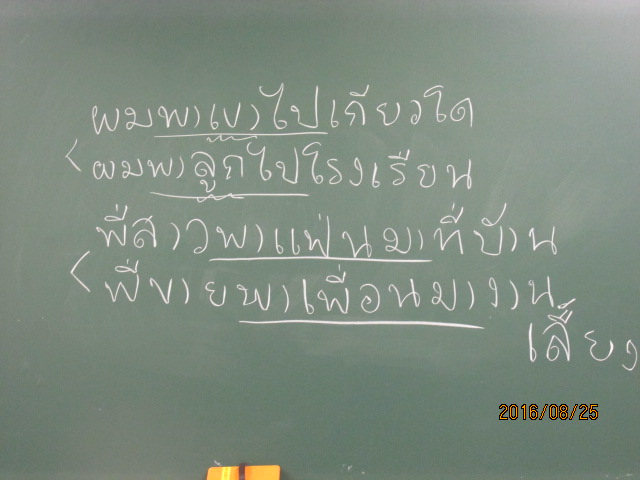 ผมพาเขาไปเกียวโด
ผมพาลูกไปโรงเรียน
พี่สาวพาแฟนมาที่บ้าน
พี่ชายพาเพื่อนมางาน
เลี้ยง
2016/08/25